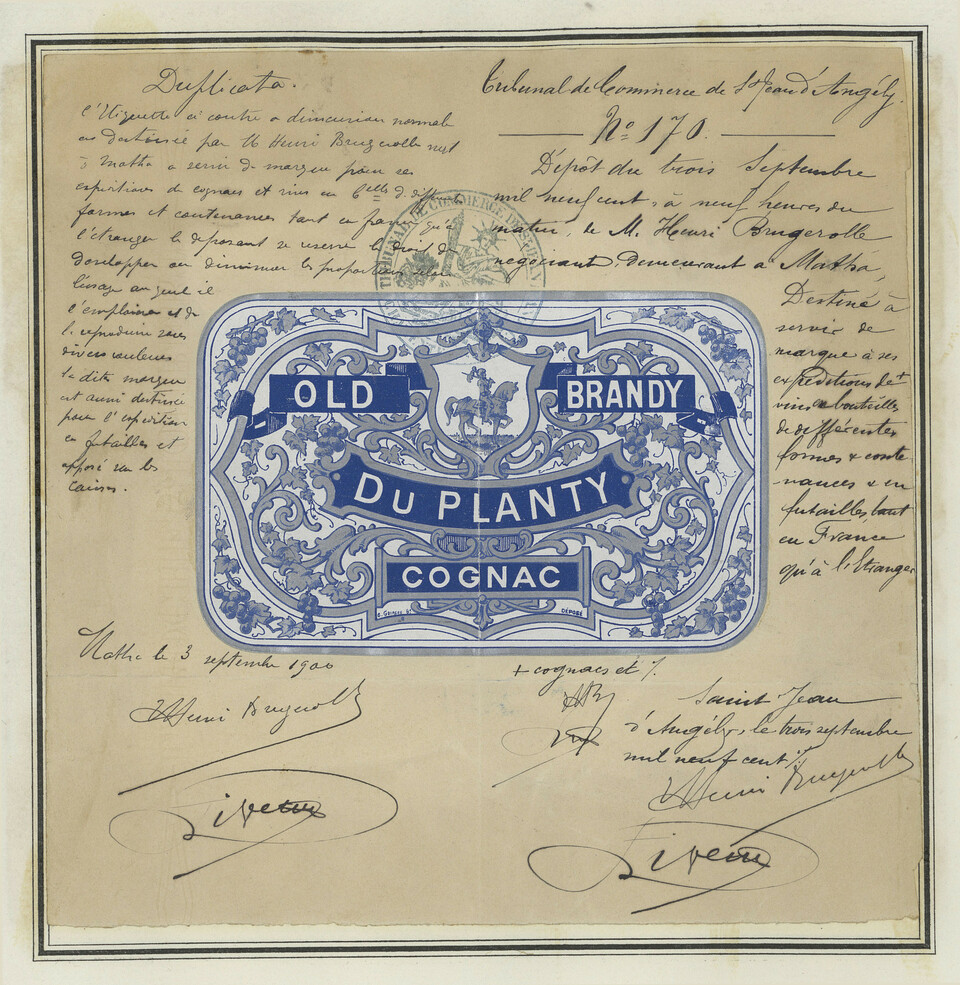 Duplicata.
l'Etiquette ci contre a dimension normale
est destinée par M Henri Brugerolle negt
à Matha a servir de marque pour ses
expéditions de cognacs et vins en blles d. diff
formes et contenances tant en France qu'à
l'étranger le déposant se reserve le droit de
développer ou diminuer les proportions selon
l'usage auquel il
l'emploiera et de
la reproduire sous
diverses couleurs
la dite marque
est aussi destinée
pour l'expédition
en futailles et
apposé sur les
Caisses.
Matha le 3 septembre 1900
Henri Brugerolle
Tribunal de Commerce de St Jean d'Angély.
No 170.
Dépôt du trois Septembre
mil neuf cent, à neuf heures du
matin, de M. Henri Brugerolle
négociant, demeurant à Matha,
Destiné à
servir de
marque à ses
expéditions de +
vins en bouteilles
de différentes
formes & conte
nances & en
futailles, tant
en France
qu'à l'Etranger
+ cognacs et /.
HB
Saint Jean
d'Angély, le trois septembre
mil neuf cent /.
Henri Brugerolle
TRIBUNAL DE COMMERCE DE ST JEAN
OLD BRANDY
DU PLANTY
COGNAC
DÉPOSÉ